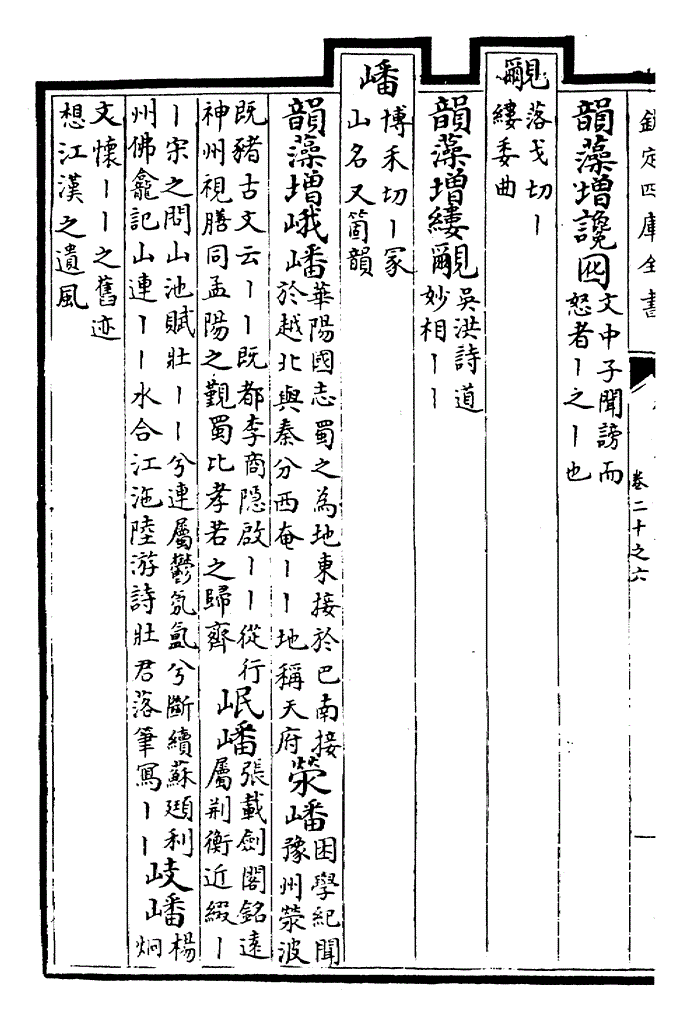 欽定四庫全書
卷二十之六
韻藻增讒囮文中子聞謗而
怒者丨之丨也
覼落戈切丨
縷委曲
韻藻增縷覼吳洪詩道
妙相丨丨
嶓博禾切丨冢
山名又箇韻
韻藻增峨嶓華陽國志蜀之為地東接於巴南接
於越北與秦分西奄丨丨地稱天府
滎嶓困學紀聞
豫州滎波
既豬古文云丨丨既都李商隱啟丨丨從行
神州視膳同孟陽之覲蜀比孝若之歸齊
岷嶓張載劍閣銘遠
屬荆衡近綴丨
丨宋之問山池賦壯丨丨兮連屬鬱氛氳兮斷續蘇頲利
州佛龕記山連丨丨水合江沲陸游詩壯君落筆寫丨丨
岐嶓楊
炯
文懷丨丨之舊迹
想江漢之遺風